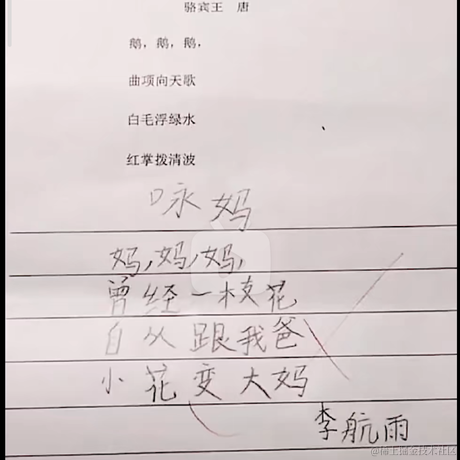 骆宾王 唐
鹅，鹅，鹅，
曲项向天歌
白毛浮绿水
红掌拨清波
咏妈
妈，妈，妈，
曾经一枝花
自从跟我爸
小花变大妈
李航雨
@稀土掘金技术社区